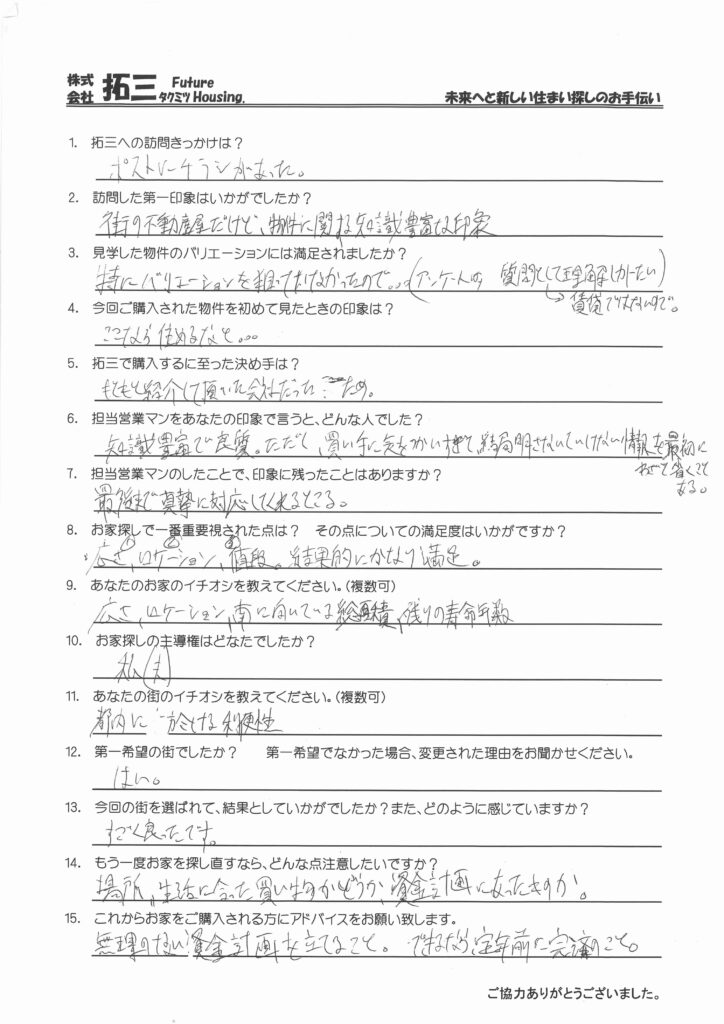 株式会社 拓三 Future
タクミツ Housing.
未来へと新しい住まい探しのお手伝い
1. 拓三への訪問きっかけは？
ポストにチラシがあった。
2. 訪問した第一印象はいかがでしたか？
街の不動産屋だけど、物件に関する知識豊富な印象
3. 見学した物件のバリエーションには満足されましたか？
特にバリエーションを狙ってなかったので…(アンケートの 質問として理解しがたい)
→賃貸ではないので。
4. 今回ご購入された物件を初めて見たときの印象は？
ここなら住めるなと…
5. 拓三で購入するに至った決め手は？
もともと紹介して頂いた会社だった ため。
6. 担当営業マンをあなたの印象で言うと、どんな人でした？
知識豊富で良質。ただし、買い手に気をつかいすぎて、結局明さないていけない情報を最初に
わざと省くこと
ある。
7. 担当営業マンのしたことで、印象に残ったことはありますか？
最後まで真摯に対応してくれるところ。
8. お家探しで一番重要視された点は？ その点についての満足度はいかがですか？
広さ、ロケーション、値段。結果的にかなり満足。
9. あなたのお家のイチオシを教えてください。（複数可）
広さ、ロケーション、南に向いている総面積、残りの寿命年数
10. お家探しの主導権はどなたでしたか？
私(夫)
11. あなたの街のイチオシを教えてください。（複数可）
都内に 於ける利便性
12. 第一希望の街でしたか？ 第一希望でなかった場合、変更された理由をお聞かせください。
はい。
13. 今回の街を選ばれて、結果としていかがでしたか？また、どのように感じていますか？
すごく良ったです。
14. もう一度お家を探し直すなら、どんな点注意したいですか？
場所、生活に合った買い物かどうか、資金計画にあったものか。
15. これからお家をご購入される方にアドバイスをお願い致します。
無理のない資金計画を立てること。できるなら、定年前に完済のこと。
ご協力ありがとうございました。